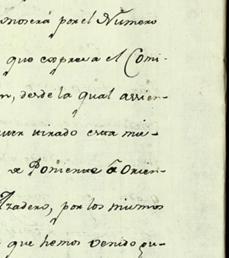 nocerá por el Numero
que expresa el Comi-
n, desde la qual assien-
tirado esta me-
a Poniente á Orien-
Azadero, por los mismos
que hemos venido gu-